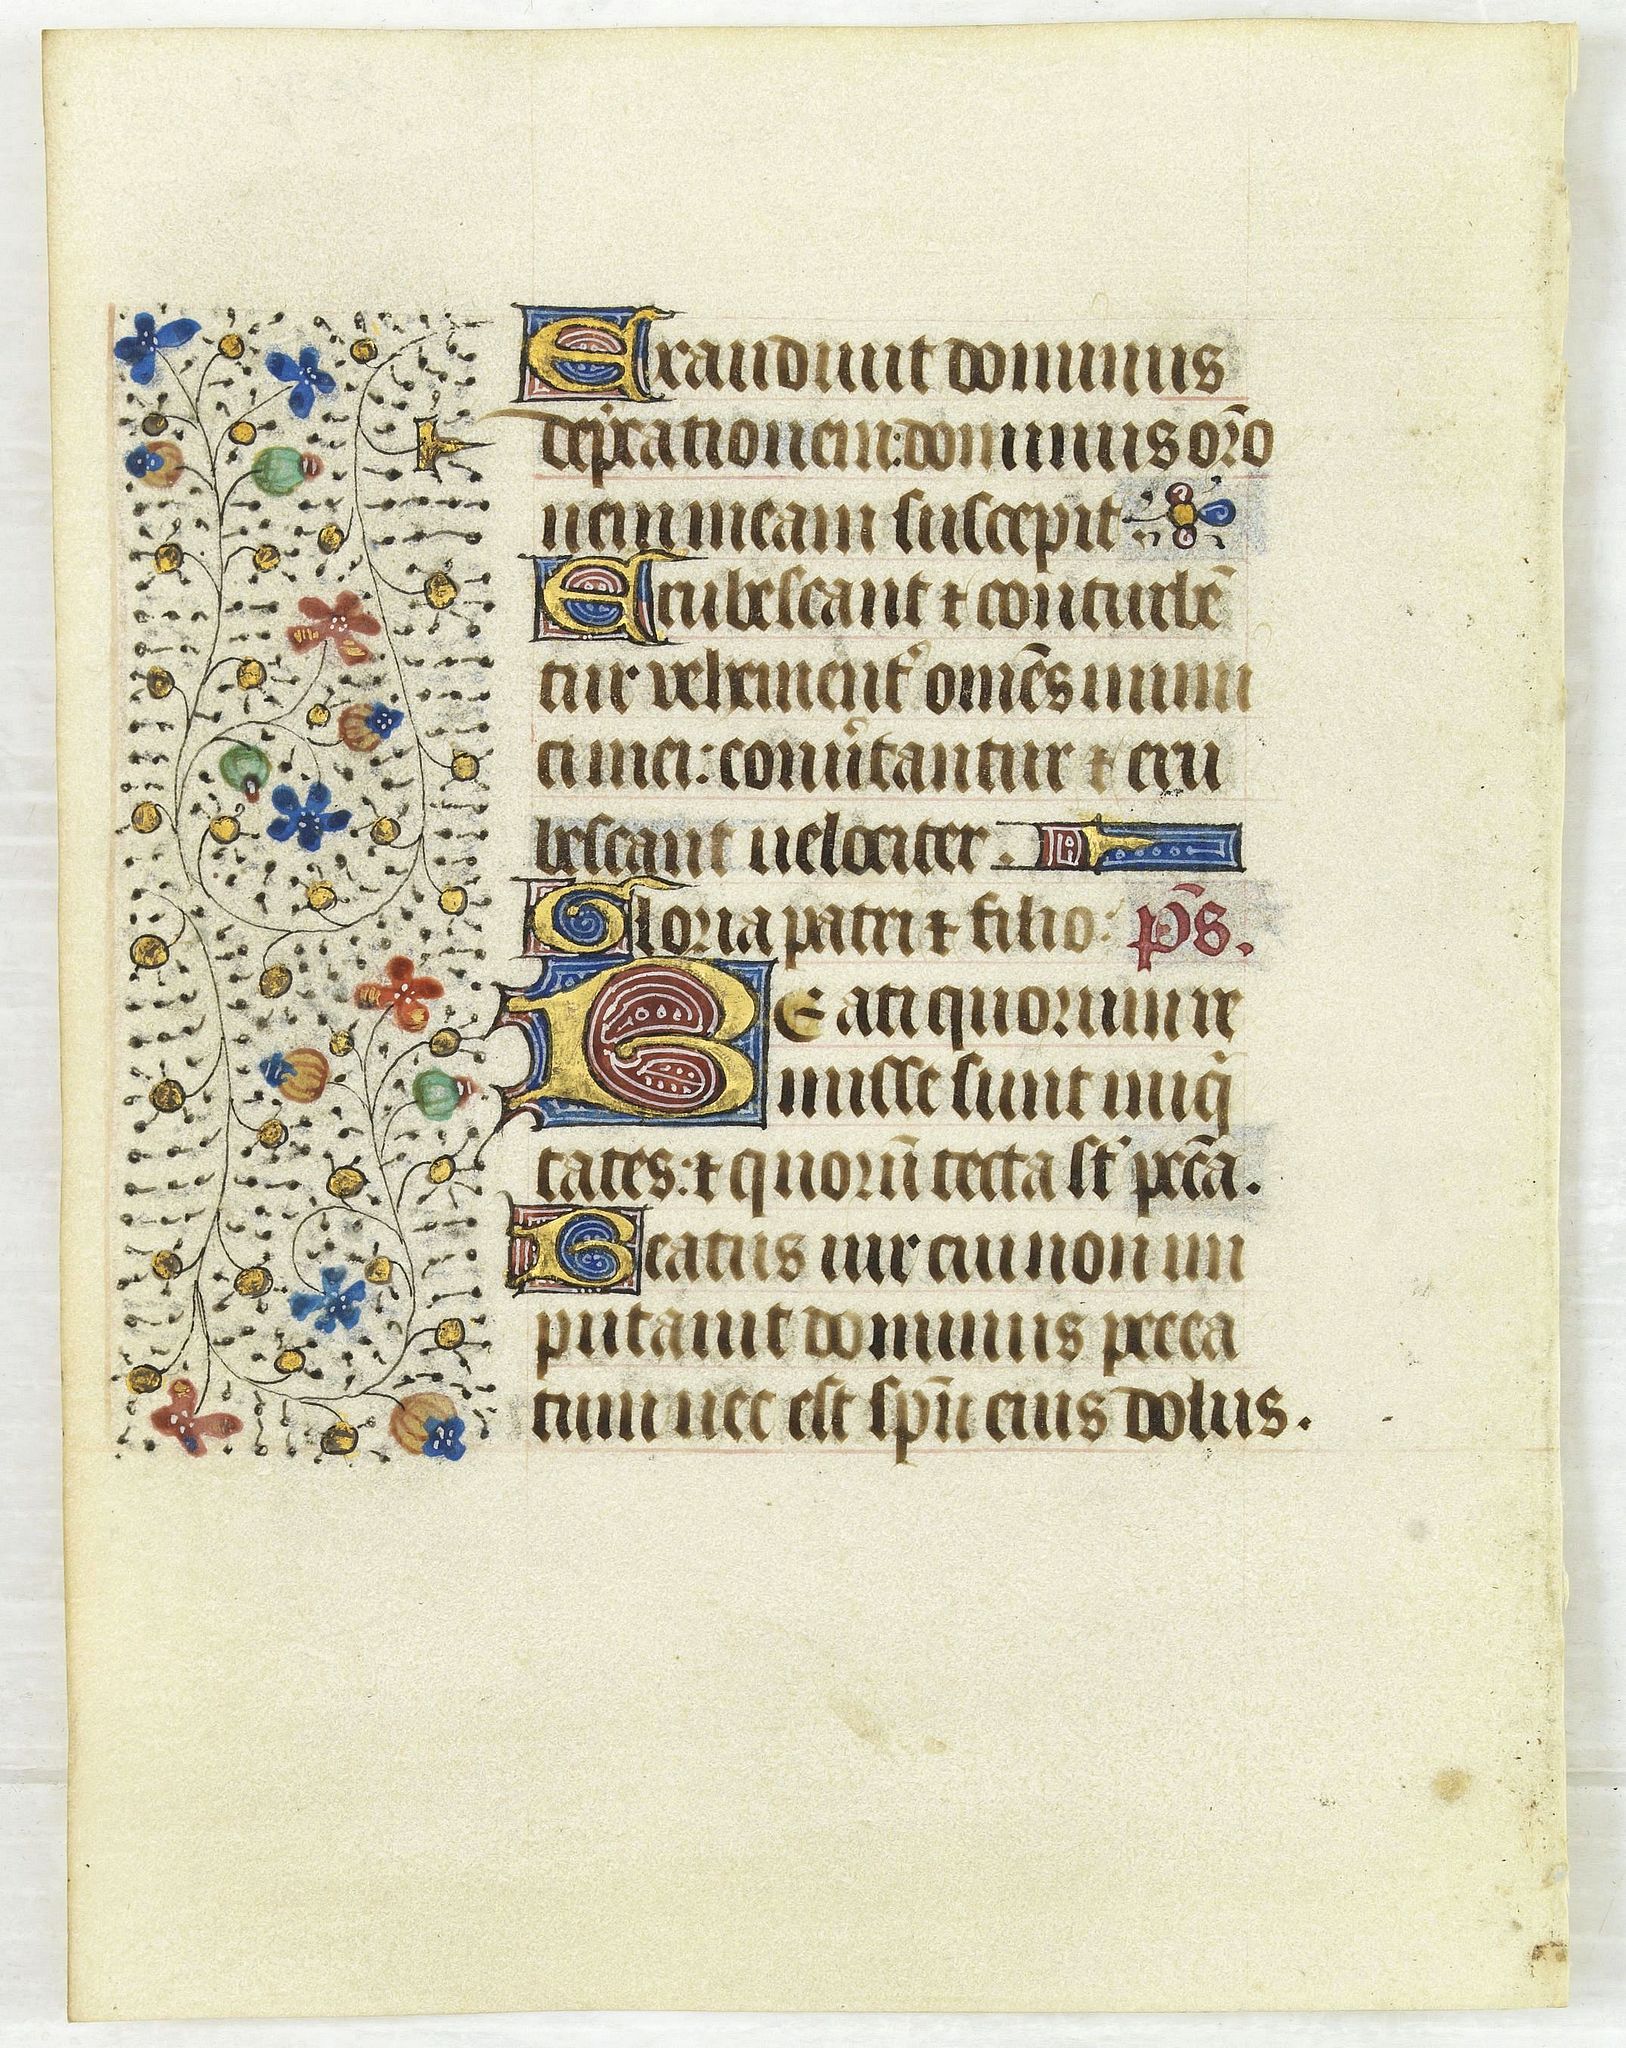 Exaudiuit dominus
dep̃cationem: dominus or̃o
nem meam suscepit
Erubescant ⁊ conturbẽ
tur vehement᾽ omẽs inimi
ci mei: conũtantur ⁊ eru
bescant uelociter.
Gloria patri ⁊ filio: p̃s.
BEati quorum re
misse sunt iniq̃
tates: ⁊ quorũ tecta st̃ pccã.
Beatus uir cui non im
putauit dominus pecca
tum nec est sp̃u eius dolus.